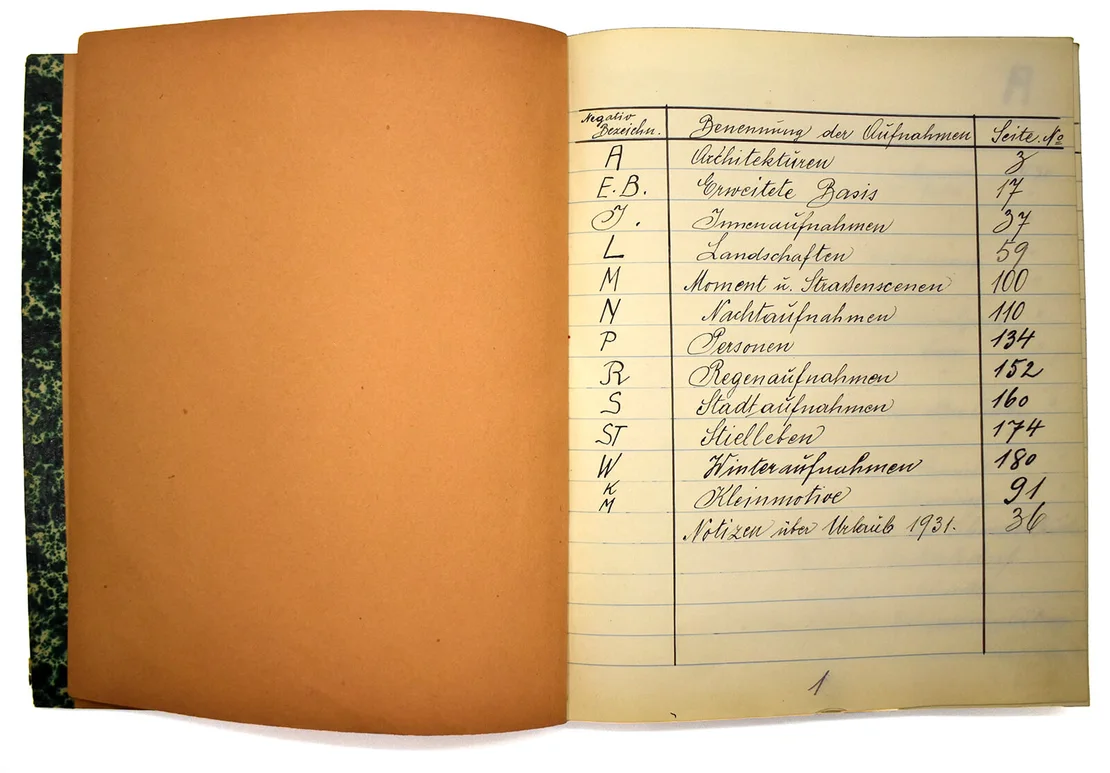 Negativ Bezeichn. Benennung der Aufnahmen Seite No
A Architekturen 3
E.B. Erweitete Basis 17
J. Innenaufnahmen 37
L Landschaften 59
M Moment u. Straßenscenen 100
N Nachtaufnahmen 110
P Personen 134
R Regenaufnahmen 152
S Stadtaufnahmen 160
ST Stielleben 174
W Winteraufnahmen 180
K M Kleinmotive 91
Notizen über Urlaub 1931. 36
1